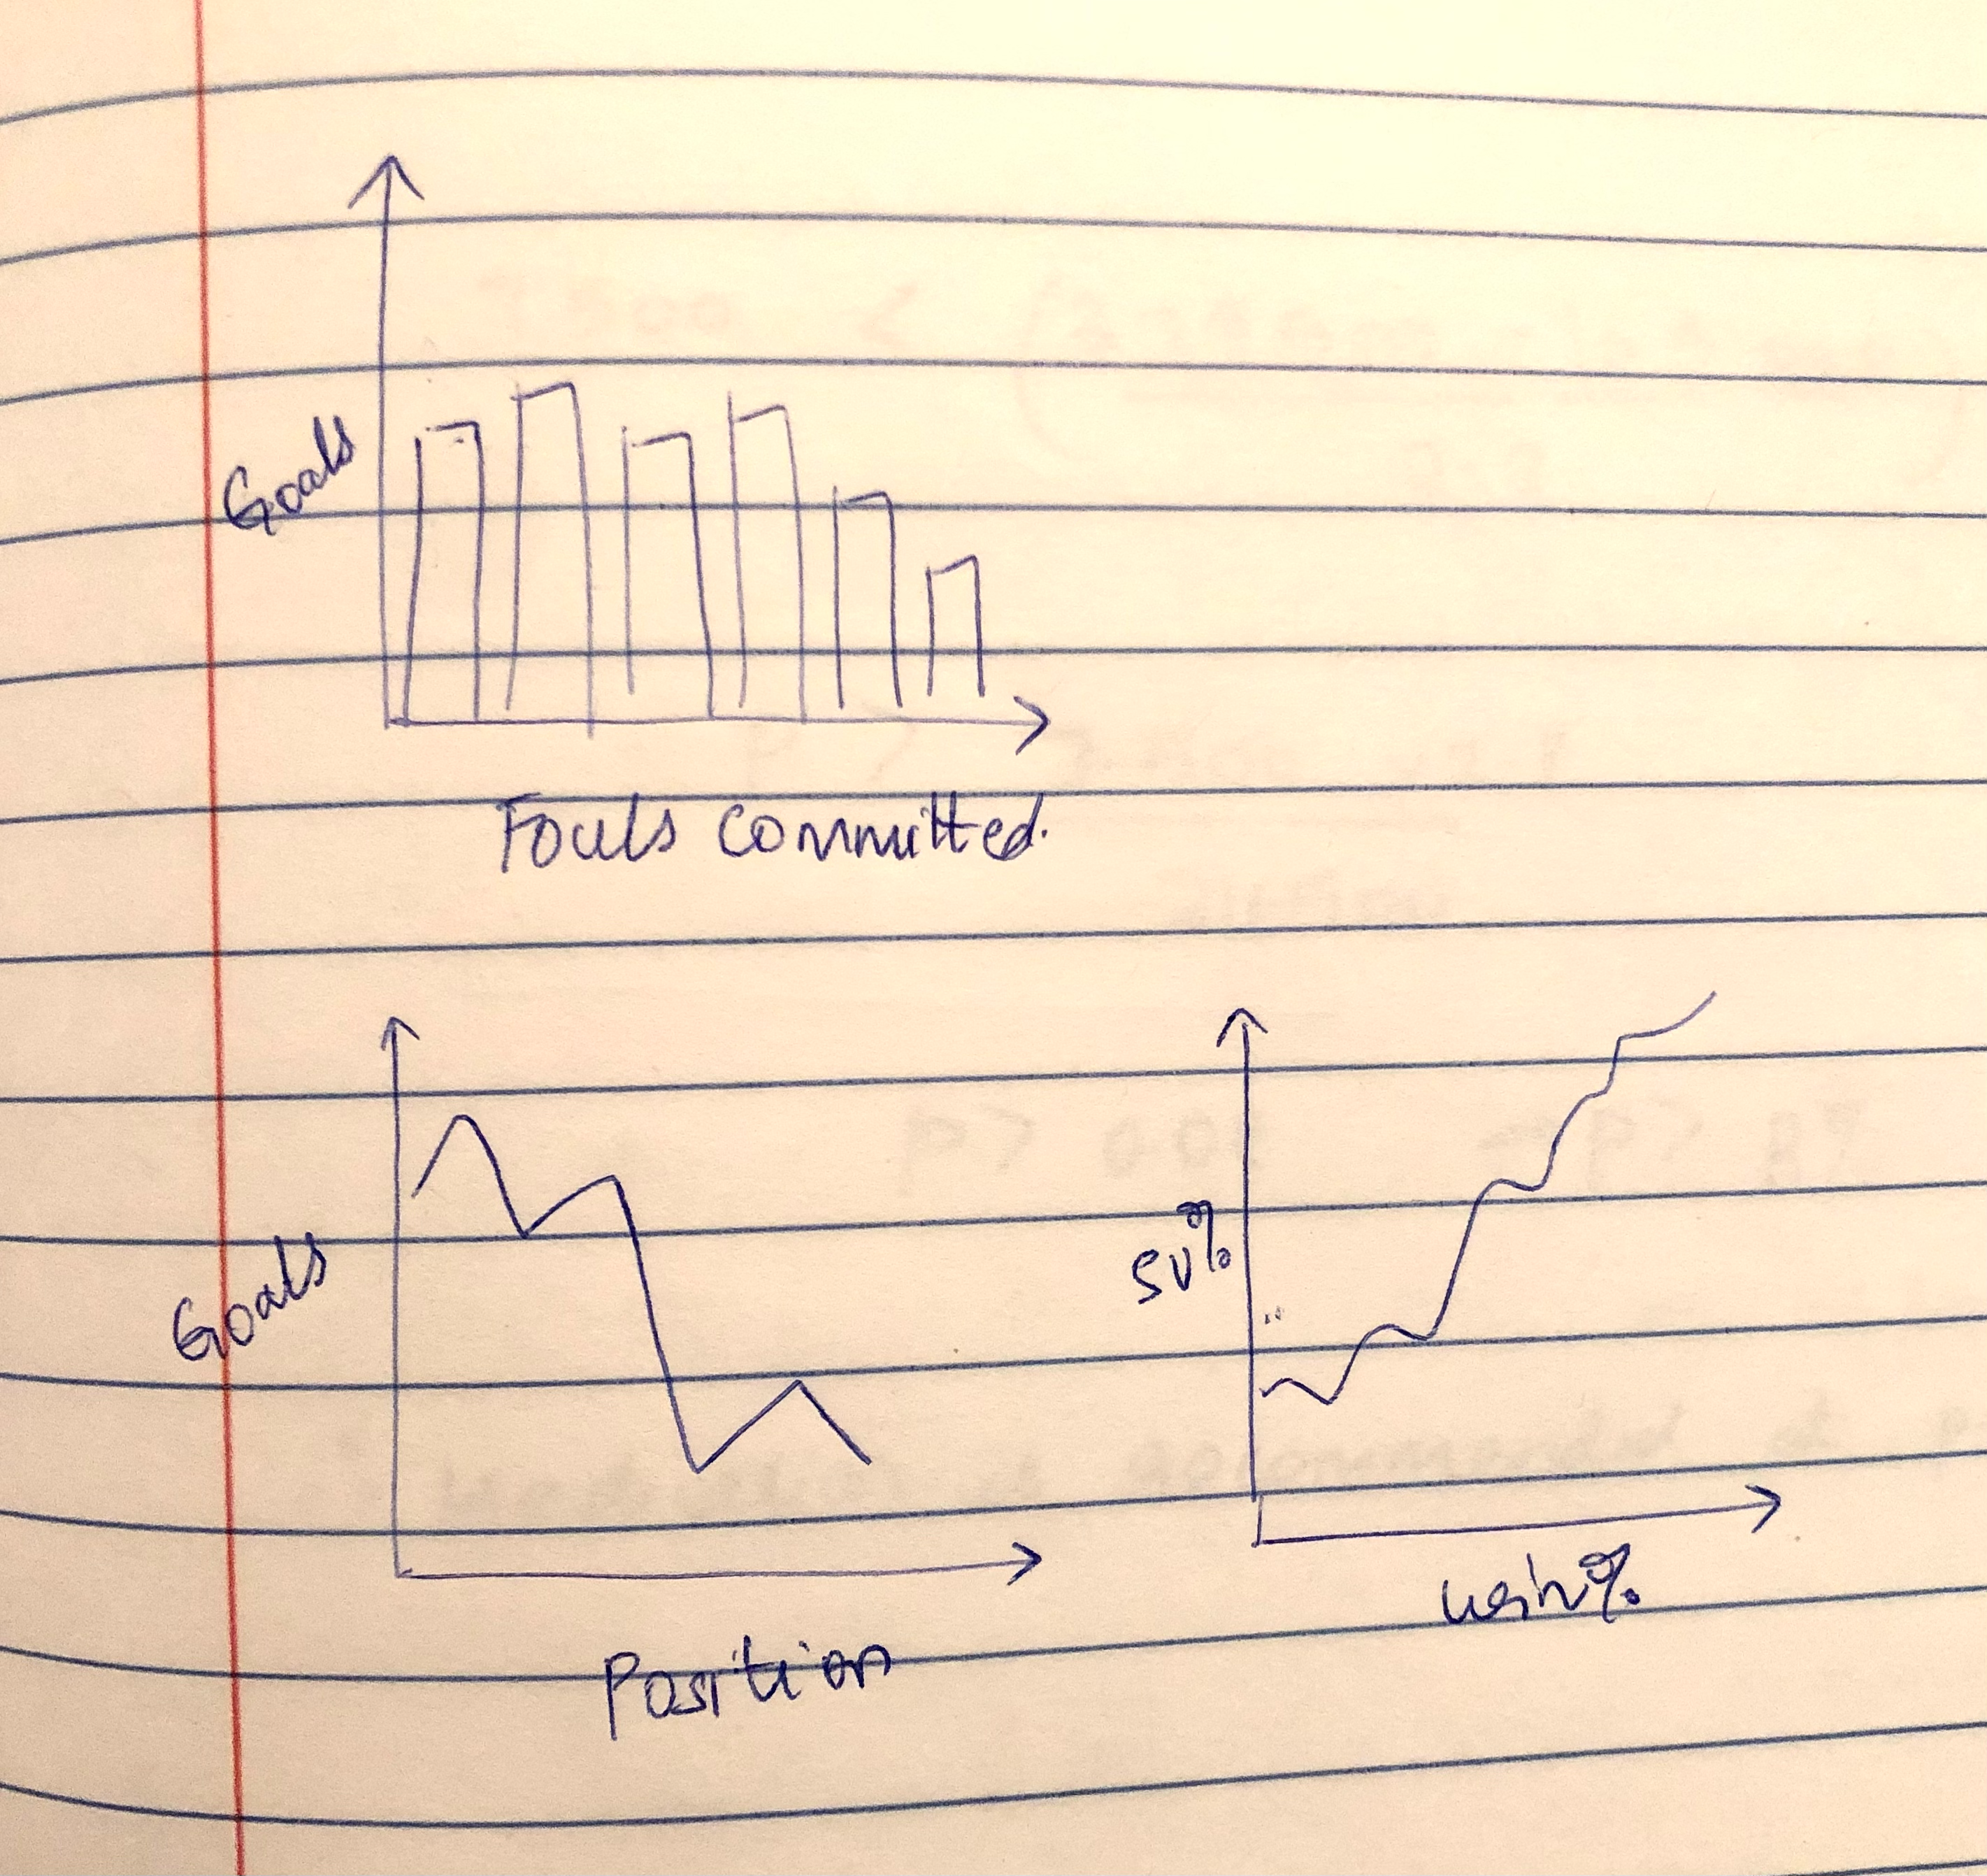 Goals
Fouls committed.
Goals
Position
SV%
win%